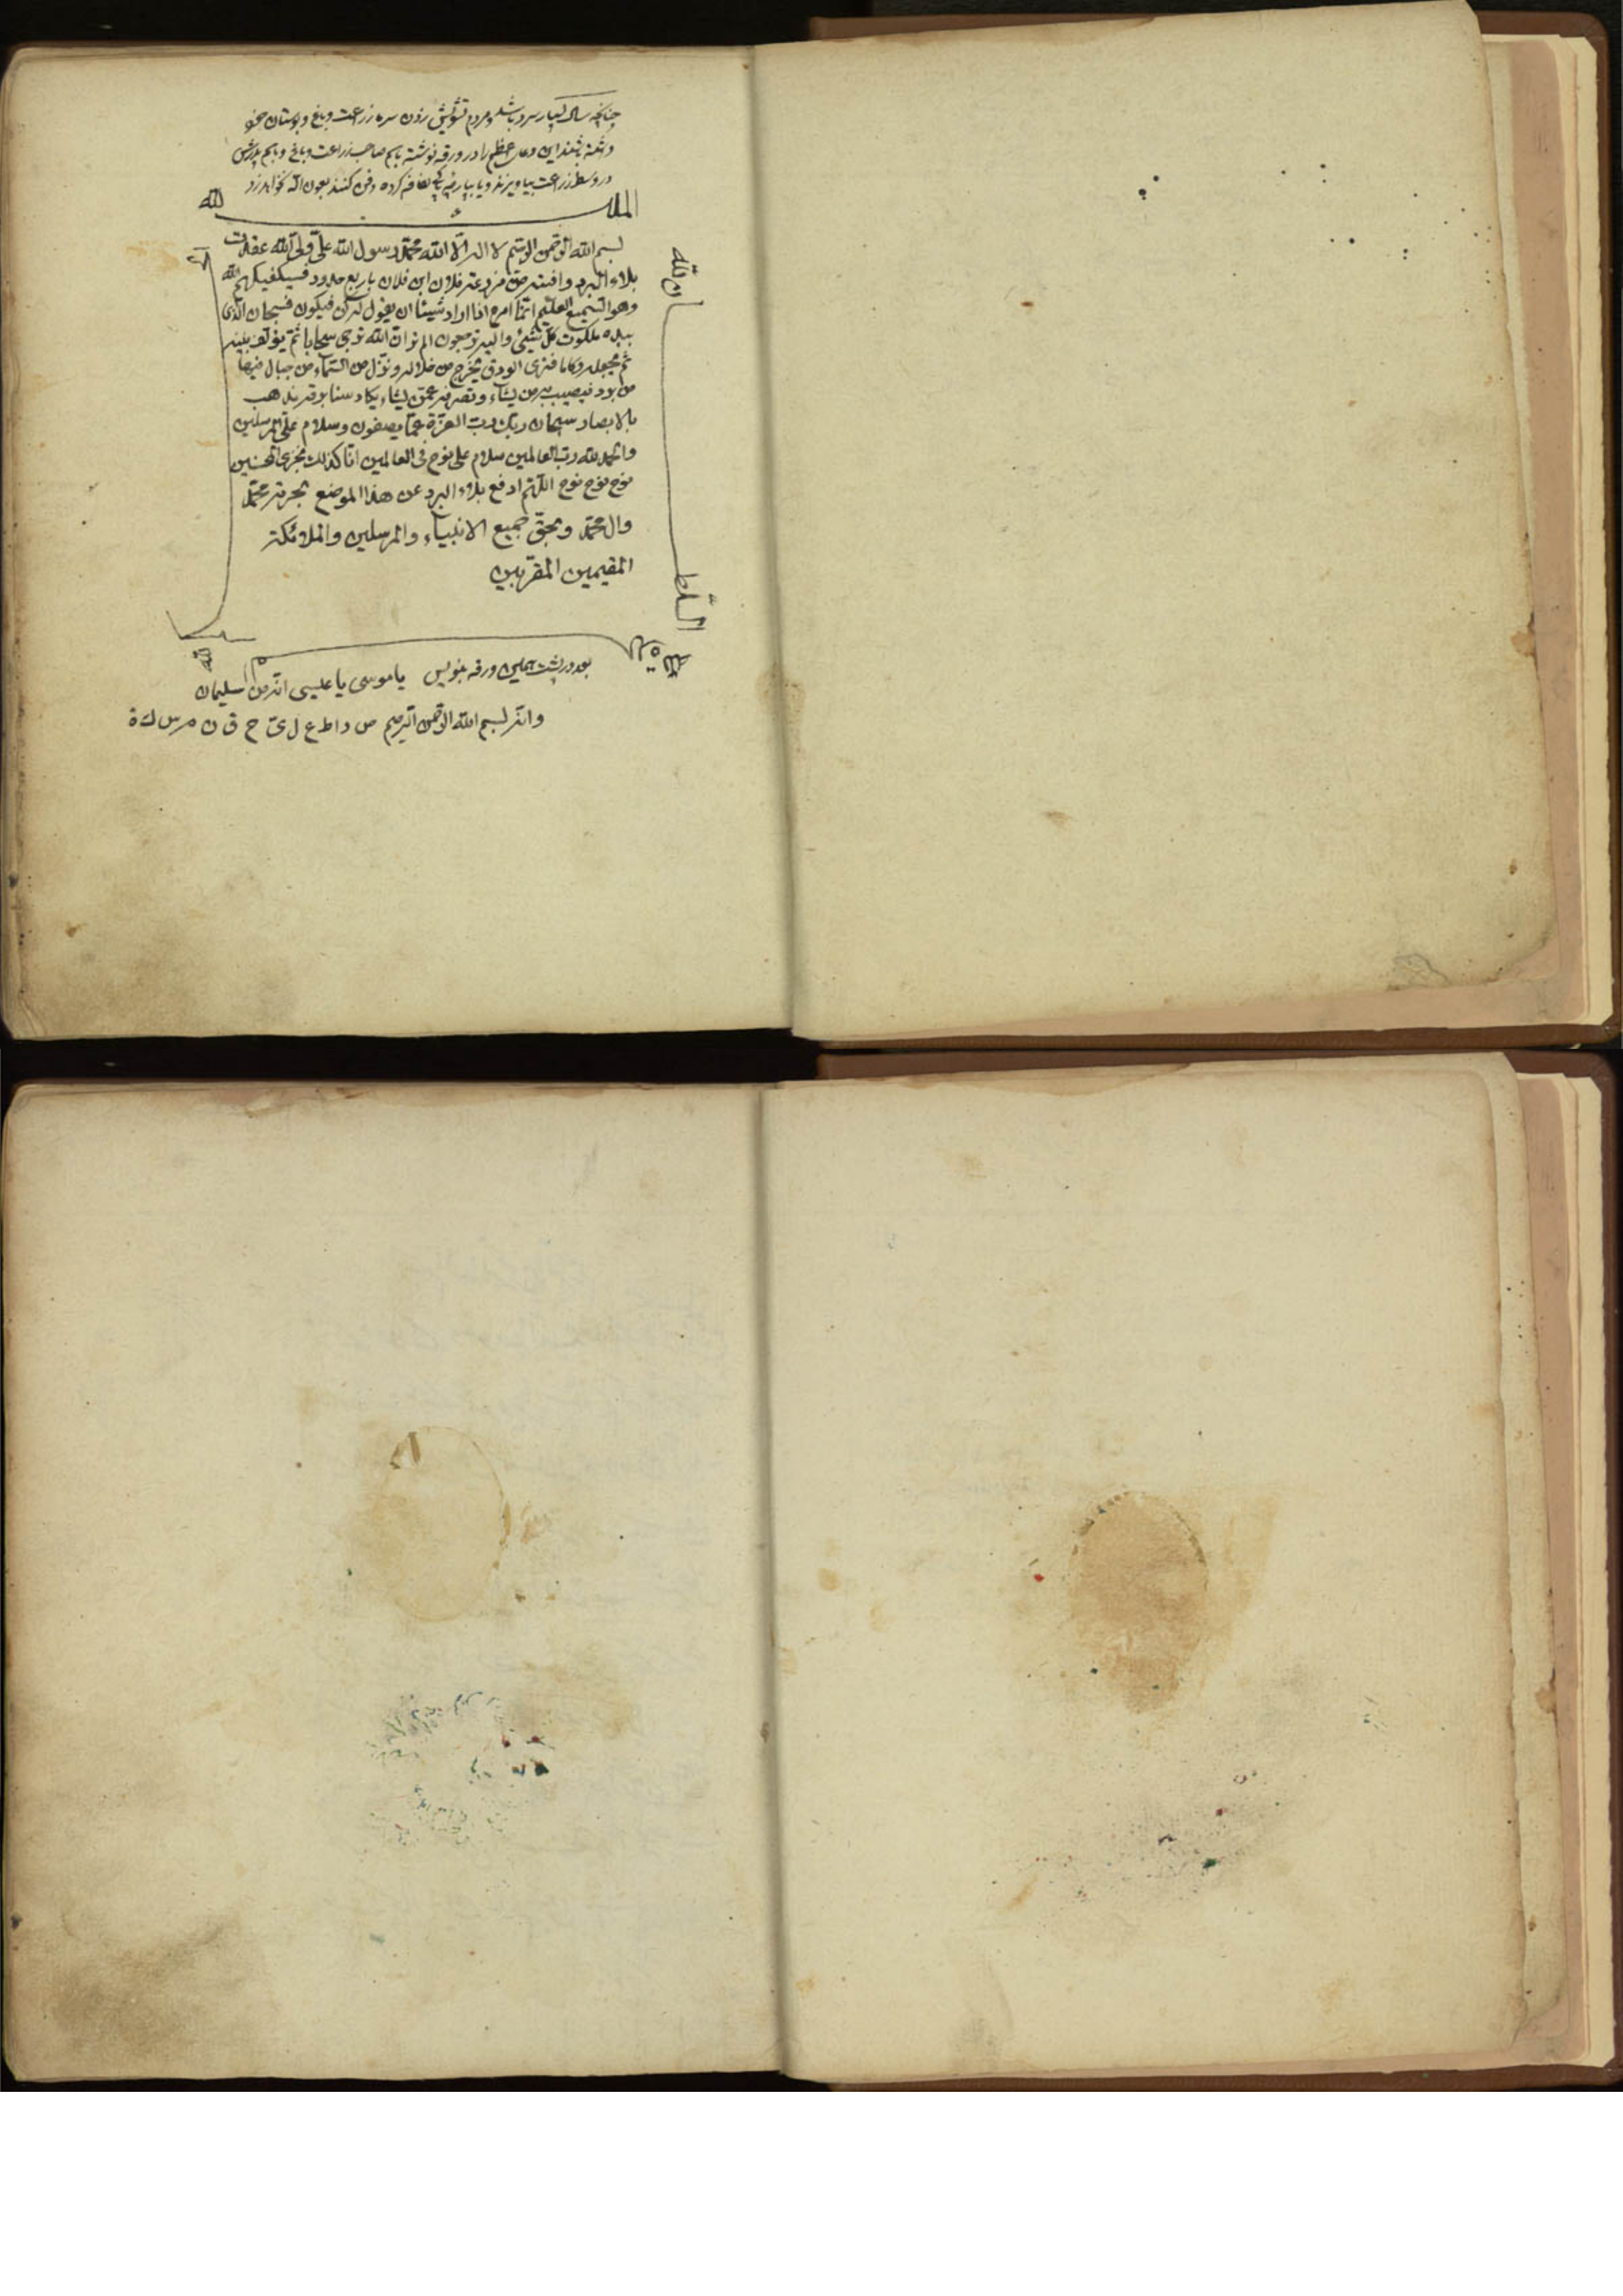 چنانچه سال بسیار سرد باشد و مردم تشویش زدن سرما زراعت و باغ و بوستان خود
داشته باشند این دعای عظیم را در ورقه نوشته باسم صاحب زراعت و باغ و باسم پدرش
در وسط زراعت بیاویزند و یا بپارچه لفافه کرده دفن کنند بعون الله نخواهد زد
الملك لله
بسم الله الرحمن الرحیم لا اله الا الله محمد رسول الله علی ولی الله عقدت
بلاء البرد وافته من مزرعة فلان ابن فلان باربع حدود فسیکفیکهم الله
وهو السمیع العلیم انما امره اذا اراد شیئا ان یقول له کن فیکون فسبحان الذی
بیده ملکوت کل شیئ والیه ترجعون الم تر ان الله یزجی سحابا ثم یؤلف بینه
ثم یجعله رکاما فتری الودق یخرج من خلاله وینزل من السماء من جبال فیها
من برد فیصیب به من یشاء ویصرفه عمن یشاء یکاد سنا برقه یذهب
بالابصار سبحان ربك رب العزة عما یصفون وسلام علی المرسلین
والحمد لله رب العالمین سلام علی نوح فی العالمین انا کذلك نجزی المحسنین
نوح نوح نوح اللهم ادفع بلاء البرد عن هذا الموضع بحرمة محمد
وال محمد وبحق جمیع الانبیاء والمرسلین والملائکة
المقیمین المقربین
بعد در پشت همین ورقه بنویس یا موسی یا عیسی انه من سلیمان
وانه بسم الله الرحمن الرحیم ص د ا ط ع ل ی ح ق ن م س ك ة